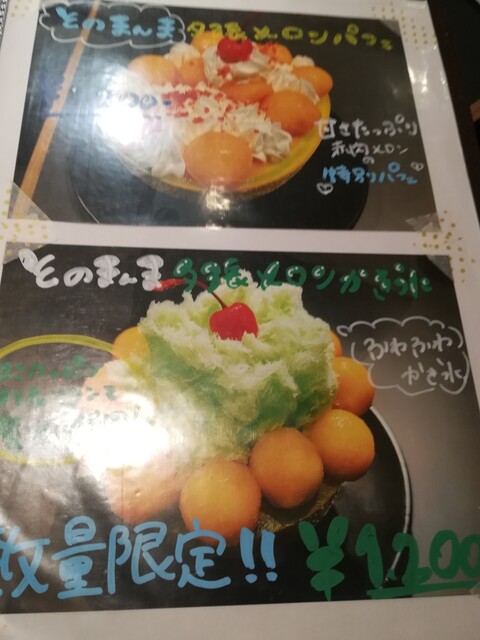 そのまんま夕張メロンパフェ
甘さたっぷり
赤肉メロン
の
特別パフェ
そのまんま夕張メロンかき氷
ふわふわ
かき氷
数量限定!! ¥1200